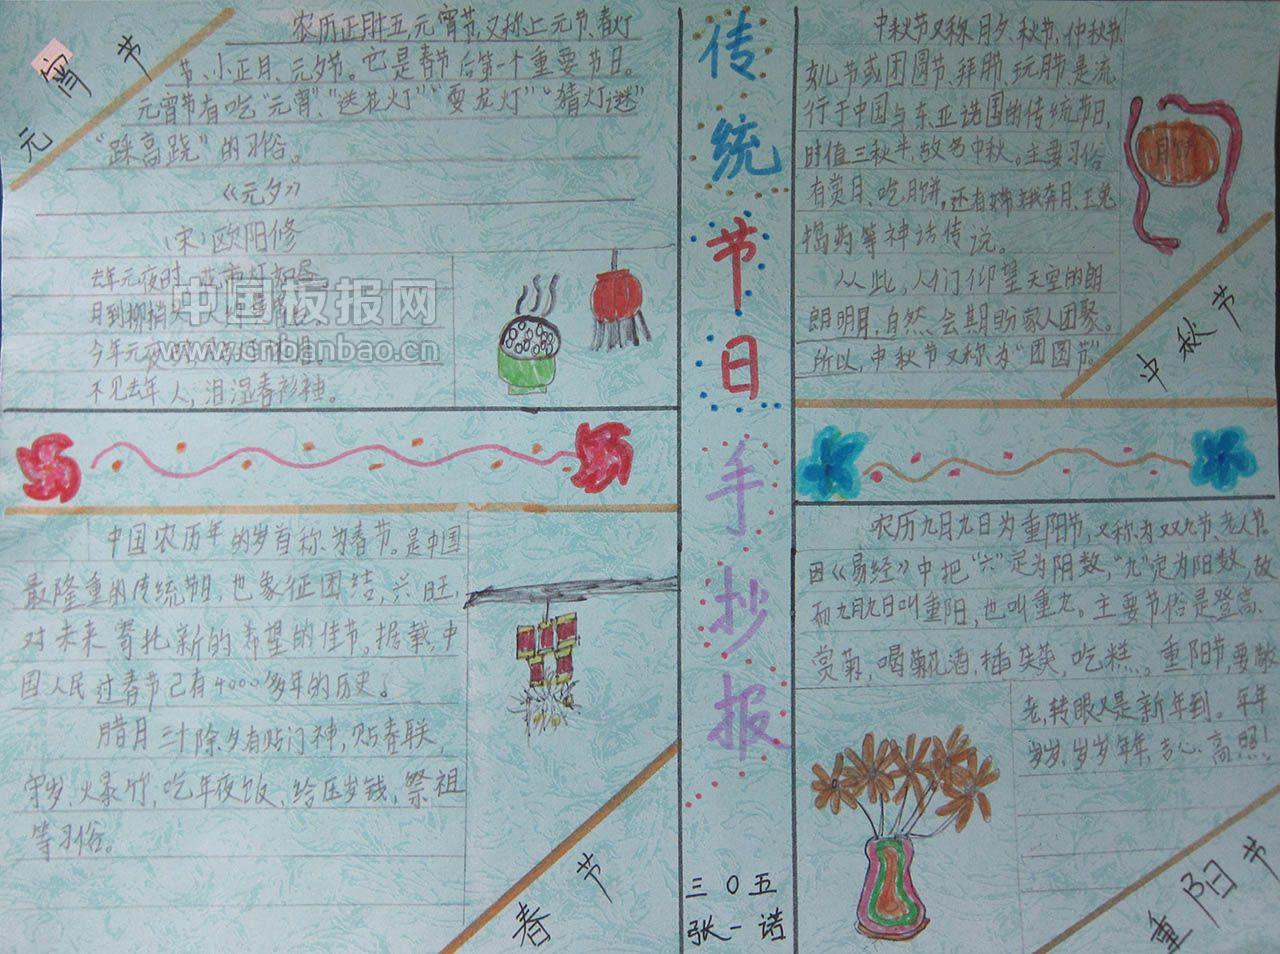 元宵节
农历正月十五元宵节又称上元节、春灯
节、小正月、元夕节。它是春节后第一个重要节日。
元宵节有吃“元宵”、“送花灯”“耍龙灯”“猜灯谜”
“踩高跷”的习俗。
《元夕》
（宋）欧阳修
去年元夜时，花市灯如昼
月到柳梢头
今年元夜时
不见去年人，泪湿春衫袖。
中国板报网
www.cnbanbao.cn
中国农历年的岁首称为春节。是中国
最隆重的传统节日，也象征团结，兴旺，
对未来寄托新的希望的佳节。据载，中
国人民过春节已有4000多年的历史。
腊月三十除夕有贴门神，贴春联，
守岁、火暴竹，吃年夜饭，给压岁钱，祭祖
等习俗。
春节
传统节日手抄报
三0五
张一诺
中秋节又称月夕、秋节、仲秋节
或团圆节、拜月节、玩月节是流
行于中国与东亚诸国的传统节日，
时值三秋半，故名中秋。主要习俗
有赏月、吃月饼，还有嫦娥奔月、玉兔
捣药等神话传说。
从此，人们仰望天空的朗
朗明月，自然会期盼家人团聚。
所以，中秋节又称为“团圆节”。
月饼
中秋节
农历九月九日为重阳节，又称为双九节、老人节。
因《易经》中把“六”定为阴数，“九”定为阳数，故
而九月九日叫重阳，也叫重九。主要节俗是登高、
赏菊，喝菊花酒，插茱萸，吃糕。重阳节，要敬
老，转眼又是新年到。年年
岁岁，岁岁年年，吉心高照！
重阳节